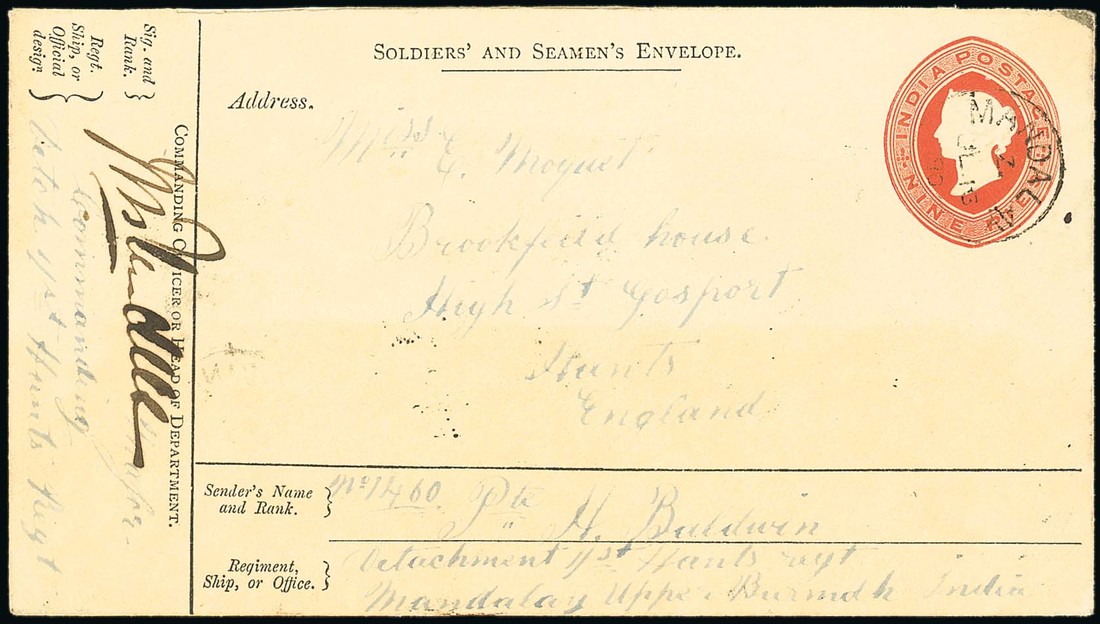 SOLDIERS' AND SEAMEN'S ENVELOPE.
INDIA POSTAGE
NINE PIES
MANDALAY
Address.
Miss E. Moquet
Brookfield house.
High St Gosport
Hants
England
Sender's Name and Rank. } No 1460. Pte H. Baldwin
Regiment, Ship, or Office. } Detachment 1/st Hants regt
Mandalay Upper Burmah India
Sig. and Rank. }
Regt. Ship, or Official design }
COMMANDING OFFICER OR HEAD OF DEPARTMENT.
Commanding
Detch 1/st Hants Regt